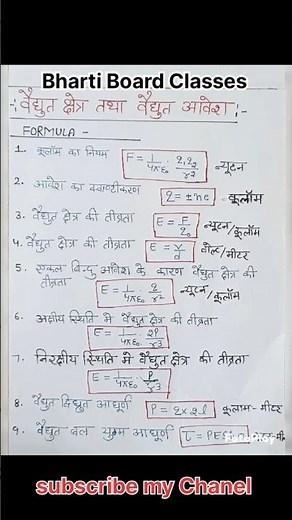 Bharti Board Classes
-: वैद्युत क्षेत्र तथा वैद्युत आवेश :-
FORMULA -
1. कूलॉम का नियम F = 1/4πε₀ . q₁q₂/r² न्यूटन
2. आवेश का क्वाण्टीकरण q = ±ne - कूलॉम
3. वैद्युत क्षेत्र की तीव्रता E = F/q₀ न्यूटन/कूलॉम
4. वैद्युत क्षेत्र की तीव्रता E = V/d वोल्ट/मीटर
5. एकल बिन्दु आवेश के कारण वैद्युत क्षेत्र की
तीव्रता E = 1/4πε₀ . q/r² न्यूटन/कूलॉम
6. अक्षीय स्थिति में वैद्युत क्षेत्र की तीव्रता
E = 1/4πε₀ . 2P/r3
7. निरक्षीय स्थिति में वैद्युत क्षेत्र की तीव्रता
E = 1/4πε₀ . P/r3
8. वैद्युत द्विध्रुत आघूर्ण P = q x 2l कूलाम - मीटर
9. वैद्युत बल युग्म आघूर्ण τ = PE
subscribe my Chanel